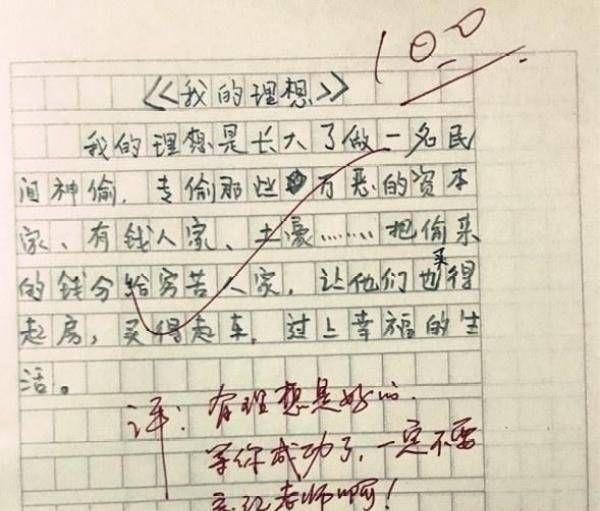 100
《我的理想》
我的理想是长大了做一名民
间神偷，专偷那些万恶的资本
家、有钱人家、土豪……把偷来
的钱分给穷苦人家，让他们也买得
起房，买得起车，过上幸福的生
活。
评：有理想是好的。
等你成功了，一定不要
忘记老师啊！